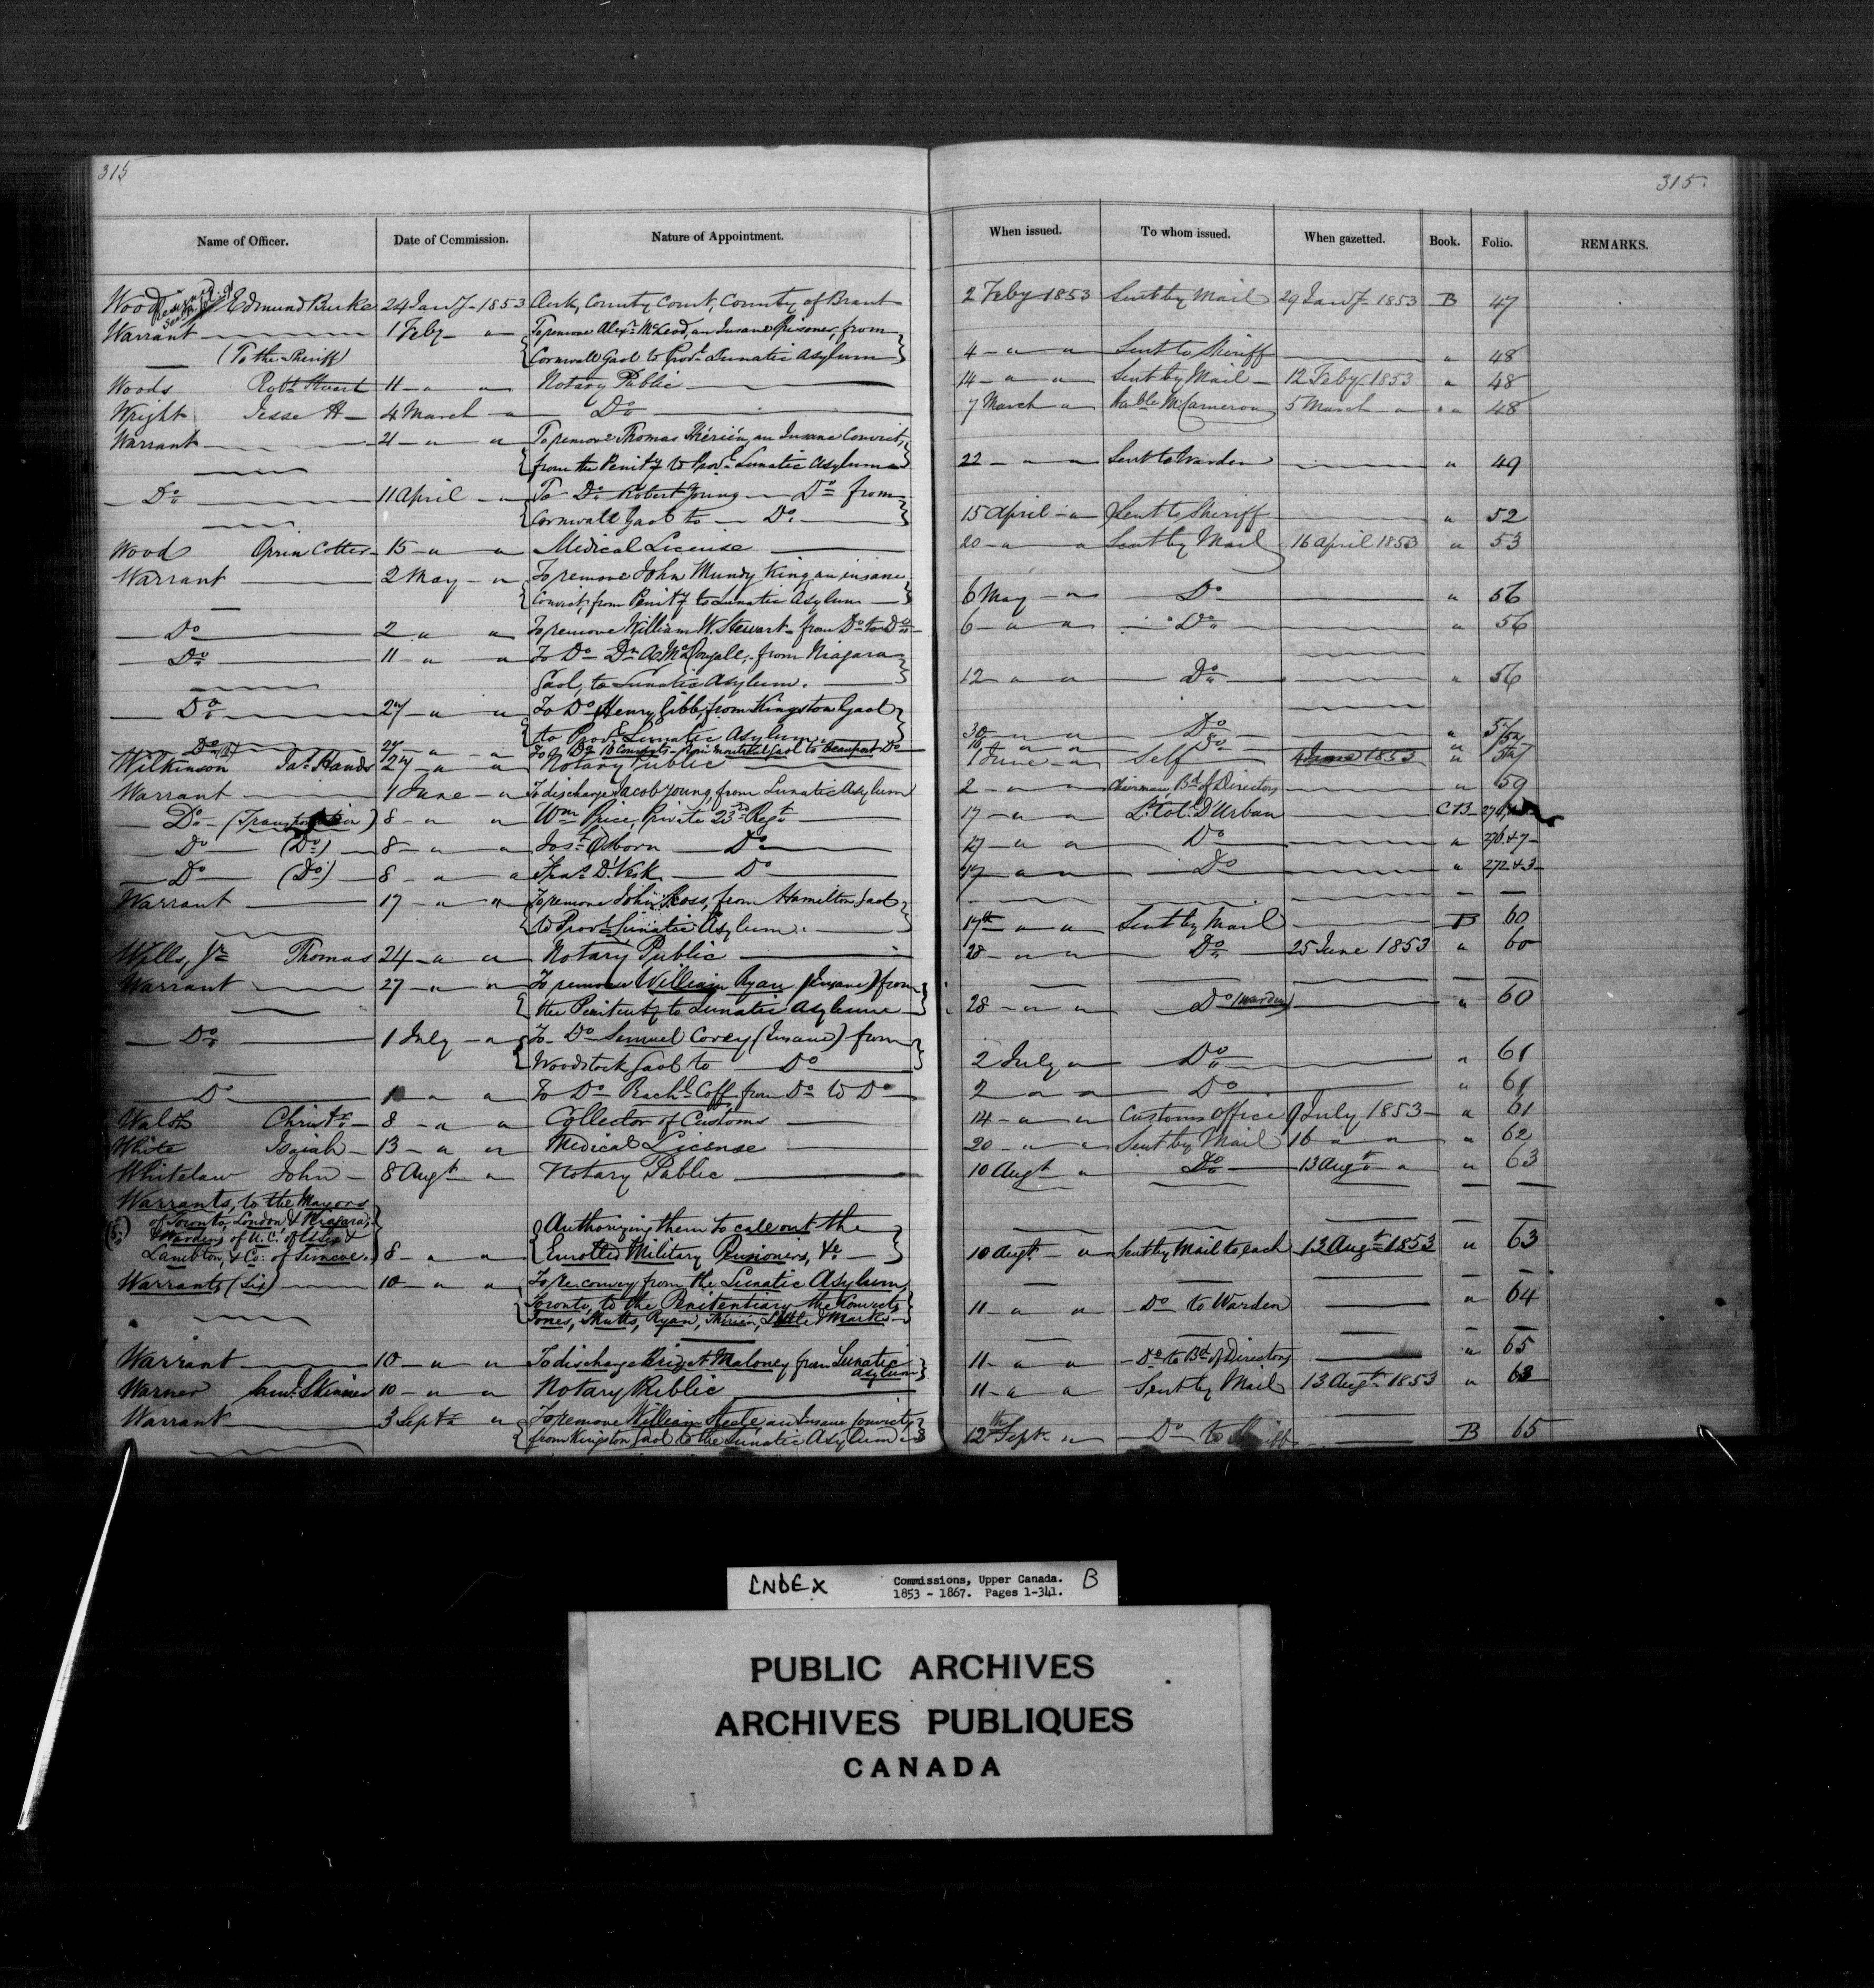 315
315.
Name of Officer. Date of Commission. Nature of Appointment. When issued. To whom issued. When gazetted. Book. Folio. REMARKS.
Wood Edmund Burke 24 Jany - 1853 Clerk, County Court, County of Brant 2 Feby 1853 Sent by Mail 29 Jany 1853 B 47
Resigned
Warrant 1 Feby - " To remove Alexr. McLeod, an Insane Prisoner, from
(To the Sheriff) Cornwall Gaol to Provl. Lunatic Asylum 4 - " " Sent to Sheriff " 48
Woods Robt. Stuart 11 - " " Notary Public 14 - " " Sent by Mail - 12 Feby 1853 " 48
Wright Jesse H - 4 March - " Do. 7 March " Hoble. M. Cameron 5 March - " " 48
Warrant 21 - " " To remove Thomas Thérién, an Insane Convict,
from the Penity. to Provl. Lunatic Asylum 22 - " " Sent to Warden " 49
Do. 11 April - " To Do. Robert Young - Do. from
Cornwall Gaol to - Do. 15 April - " Sent to Sheriff " 52
Wood Orrin Cotter - 15 - " " Medical License 20 - " " Sent by Mail 16 April 1853 " 53
Warrant 2 May - " To remove John Mundy King, an insane
Convict, from Penity. to Lunatic Asylum 6 May - " Do " 56
Do 2 " " To remove William W. Stewart - from Do. to Do. 6 - " " Do. " 56
Do. 11 - " " To Do. Dn. A. McDougall, from Niagara
Gaol, to Lunatic Asylum. 12 " " Do. " 56
Do. 27 - " " To Do. Henry Gibb, from Kingston Gaol
to Provl. Lunatic Asylum. 30 - " " Do. "
Do. 27 - " " To Do. Convicts from Montreal Gaol to Beauport Do. " " Do "
Wilkinson Jas. Hands 27 - " " Notary Public 1 June - " Self 4 June 1853 "
Warrant 1 June - " To discharge Jacob Young, from Lunatic Asylum 2 - " " Chairman, Bd. of Directors " 59
Do. - (Transportation) 8 - " " Wm. Price, Private 23rd Regt. 17 - " " Lt. Col. D'Urban C 13 -
Do (Do.) 8 - " " Jos. Osborn Do. 17 - " " Do " 276 & 7 -
Do (Do.) 8 - " " Do 17 - " " Do " 272 & 3 -
Warrant 17 - " " To remove John Ross, from Hamilton Gaol
to Provl. Lunatic Asylum. 17th - " " Sent by Mail B 60
Wills, Jr. Thomas 24 - " " Notary Public 28 - " " Do. 25 June 1853 " 60
Warrant 27 - " " To remove William Ryan (Insane) from
the Penitenty. to Lunatic Asylum 28 - " " Do (Warden) " 60
Do. 1 July - " To Do Samuel Corey (Insane) from
Woodstock Gaol to Do 2 July " Do. " 61
Do 1 " " To Do Rachl. Goff from Do to Do 2 - " " Do " 61
Walsh Christr. - 8 - " " Collector of Customs 14 - " " Customs Office 9 July 1853 - " 61
White Isaiah - 13 - " " Medical License 20 - " " Sent by Mail 16 - " " " 62
Whitelaw John - 8 Augt. " Notary Public 10 Augt. " Do. 13 Augt. " " 63
Warrants, to the Mayors
of Toronto, London, & Niagara; Authorizing them to call out the
(5.) & Wardens of U.C. of Essex &
Lambton, & Co: of Simcoe. 8 - " " Enrolled Military Pensioners, &c. 10 Augt. - " Sent by Mail to each 13 Augt. 1853 " 63
Warrants (Six) 10 - " " To re-convey from the Lunatic Asylum,
Toronto, to the Penitentiary the Convicts
Jones, Shutts, Ryan, Thérién, Little & Marks 11 - " " Do to Warden " 64
Warrant 10 - " " To discharge Bridget Maloney from Lunatic
Asylum 11 - " " - Do. to Bd. of Directors " 65
Warner Saml. Skinner 10 - " " Notary Public 11 - " " Sent by Mail 13 Augt. 1853 " 63
Warrant 3 Septr. " To remove William Steele an Insane Convict,
from Kingston Gaol to the Lunatic Asylum 12th Sept. " Do to Sheriff B 65
INDEX Commissions, Upper Canada. B
1853 - 1867. Pages 1-341.
PUBLIC ARCHIVES
ARCHIVES PUBLIQUES
CANADA